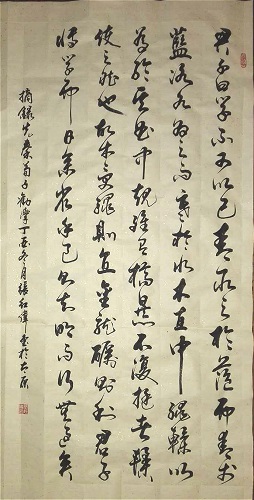 君子曰学不可以已青取之於蓝而青於
藍冰水為之而寒於水木直中繩輮以
為輪其曲中規雖有槁暴不復挺者輮
使之然也故木受繩則直金就礪則利君子
博学而日参省乎己則知明而行無過矣
摘録先秦荀子勸學丁酉冬月張红偉書於太原